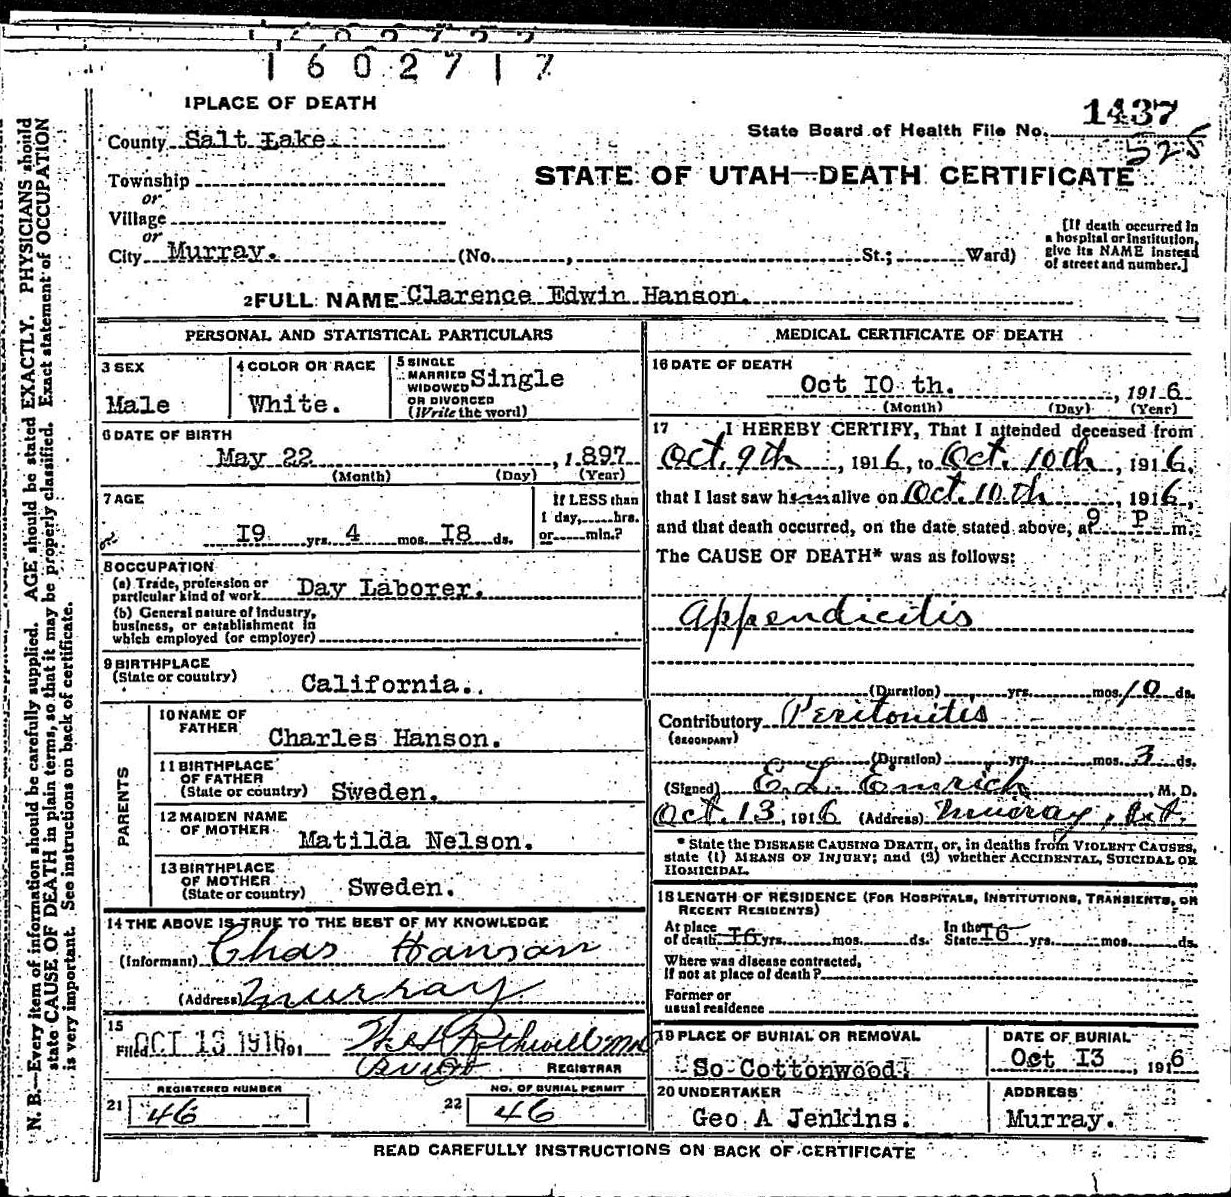 1602717
1 PLACE OF DEATH
County Salt Lake.
Township
or
Village
or
City Murray. (No. , St.; Ward)
State Board of Health File No. 1437
525
STATE OF UTAH—DEATH CERTIFICATE
[If death occurred in
a hospital or institution,
give its NAME instead
of street and number.]
2 FULL NAME Clarence Edwin Hanson.
PERSONAL AND STATISTICAL PARTICULARS
3 SEX
Male
4 COLOR OR RACE
White.
5 SINGLE
MARRIED
WIDOWED
OR DIVORCED
(Write the word)
Single
6 DATE OF BIRTH
May 22, 1897
(Month) (Day) (Year)
7 AGE
19 yrs. 4 mos. 18 ds.
If LESS than
1 day, hrs.
or min.?
8 OCCUPATION
(a) Trade, profession or
particular kind of work Day Laborer.
(b) General nature of Industry,
business, or establishment in
which employed (or employer)
9 BIRTHPLACE
(State or country) California.
PARENTS
10 NAME OF
FATHER
Charles Hanson.
11 BIRTHPLACE
OF FATHER
(State or country) Sweden.
12 MAIDEN NAME
OF MOTHER
Matilda Nelson.
13 BIRTHPLACE
OF MOTHER
(State or country) Sweden.
14 THE ABOVE IS TRUE TO THE BEST OF MY KNOWLEDGE
(Informant) Chas Hanson
(Address) Murray
15
Filed OCT 13 1916 191
Rothwell MD
REGISTRAR
REGISTERED NUMBER
21 46
NO. OF BURIAL PERMIT
22 46
MEDICAL CERTIFICATE OF DEATH
16 DATE OF DEATH
Oct 10 th. , 1916
(Month) (Day) (Year)
17 I HEREBY CERTIFY, That I attended deceased from
Oct. 9th , 1916, to Oct. 10th , 1916,
that I last saw him alive on Oct. 10th , 1916,
and that death occurred, on the date stated above, at 9 P m.
The CAUSE OF DEATH* was as follows:
Appendicitis
(Duration) yrs. mos. 10 ds.
Contributory Peritonitis
(SECONDARY)
(Duration) yrs. mos. 3 ds.
(Signed) E. L. Emrich , M. D.
Oct. 13, 1916 (Address) Murray, Ut.
* State the DISEASE CAUSING DEATH, or, in deaths from VIOLENT CAUSES,
state (1) MEANS OF INJURY; and (2) whether ACCIDENTAL, SUICIDAL OR
HOMICIDAL.
18 LENGTH OF RESIDENCE (FOR HOSPITALS, INSTITUTIONS, TRANSIENTS, OR
RECENT RESIDENTS)
At place
of death 16 yrs. mos. ds.
In the
State 16 yrs. mos. ds.
Where was disease contracted,
If not at place of death?
Former or
usual residence
19 PLACE OF BURIAL OR REMOVAL
So Cottonwood
DATE OF BURIAL
Oct 13 , 1916
20 UNDERTAKER
Geo A Jenkins.
ADDRESS
Murray.
READ CAREFULLY INSTRUCTIONS ON BACK OF CERTIFICATE
N. B.—Every item of information should be carefully supplied. AGE should be stated EXACTLY. PHYSICIANS should
state CAUSE OF DEATH in plain terms, so that it may be properly classified. Exact statement of OCCUPATION
is very important. See instructions on back of certificate.